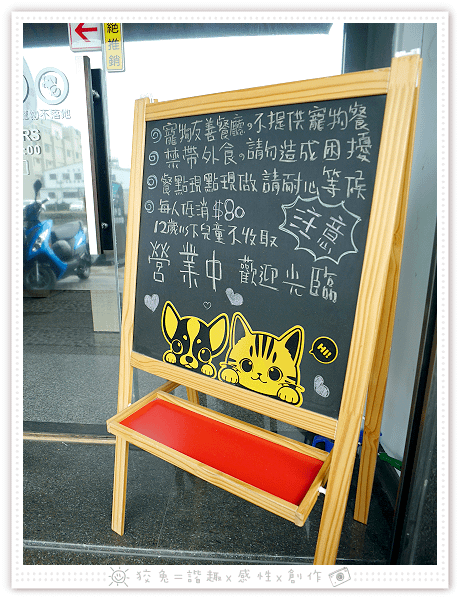 絕推銷
物不落地
◎寵物友善餐廳，不提供寵物餐
◎禁帶外食，請勿造成困擾
◎餐點現點現做 請耐心等候
◎每人低消$80
12歲以下兒童不收取
注意
營業中 歡迎光臨
HI!
狡兔=諧趣x感性x創作